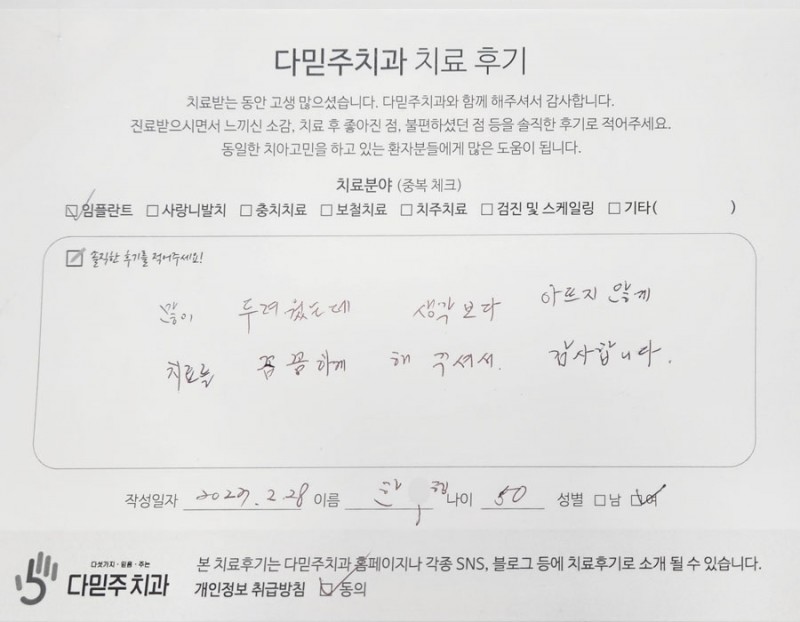 다믿주치과 치료 후기
치료받는 동안 고생 많으셨습니다. 다믿주치과와 함께 해주셔서 감사합니다.
진료받으시면서 느끼신 소감, 치료 후 좋아진 점, 불편하셨던 점 등을 솔직한 후기로 적어주세요.
동일한 치아고민을 하고 있는 환자분들에게 많은 도움이 됩니다.
치료분야 (중복 체크)
임플란트 사랑니발치 충치치료 보철치료 치주치료 검진 및 스케일링 기타( )
솔직한 후기를 적어주세요!
많이 두려웠는데 생각보다 아프지 않게
치료를 꼼꼼하게 해 주셔서. 감사합니다.
작성일자 2023. 2. 28 이름 나이 50 성별 남 여
다섯가지·믿음·주는
다믿주치과
본 치료후기는 다믿주치과 홈페이지나 각종 SNS, 블로그 등에 치료후기로 소개 될 수 있습니다.
개인정보 취급방침 동의